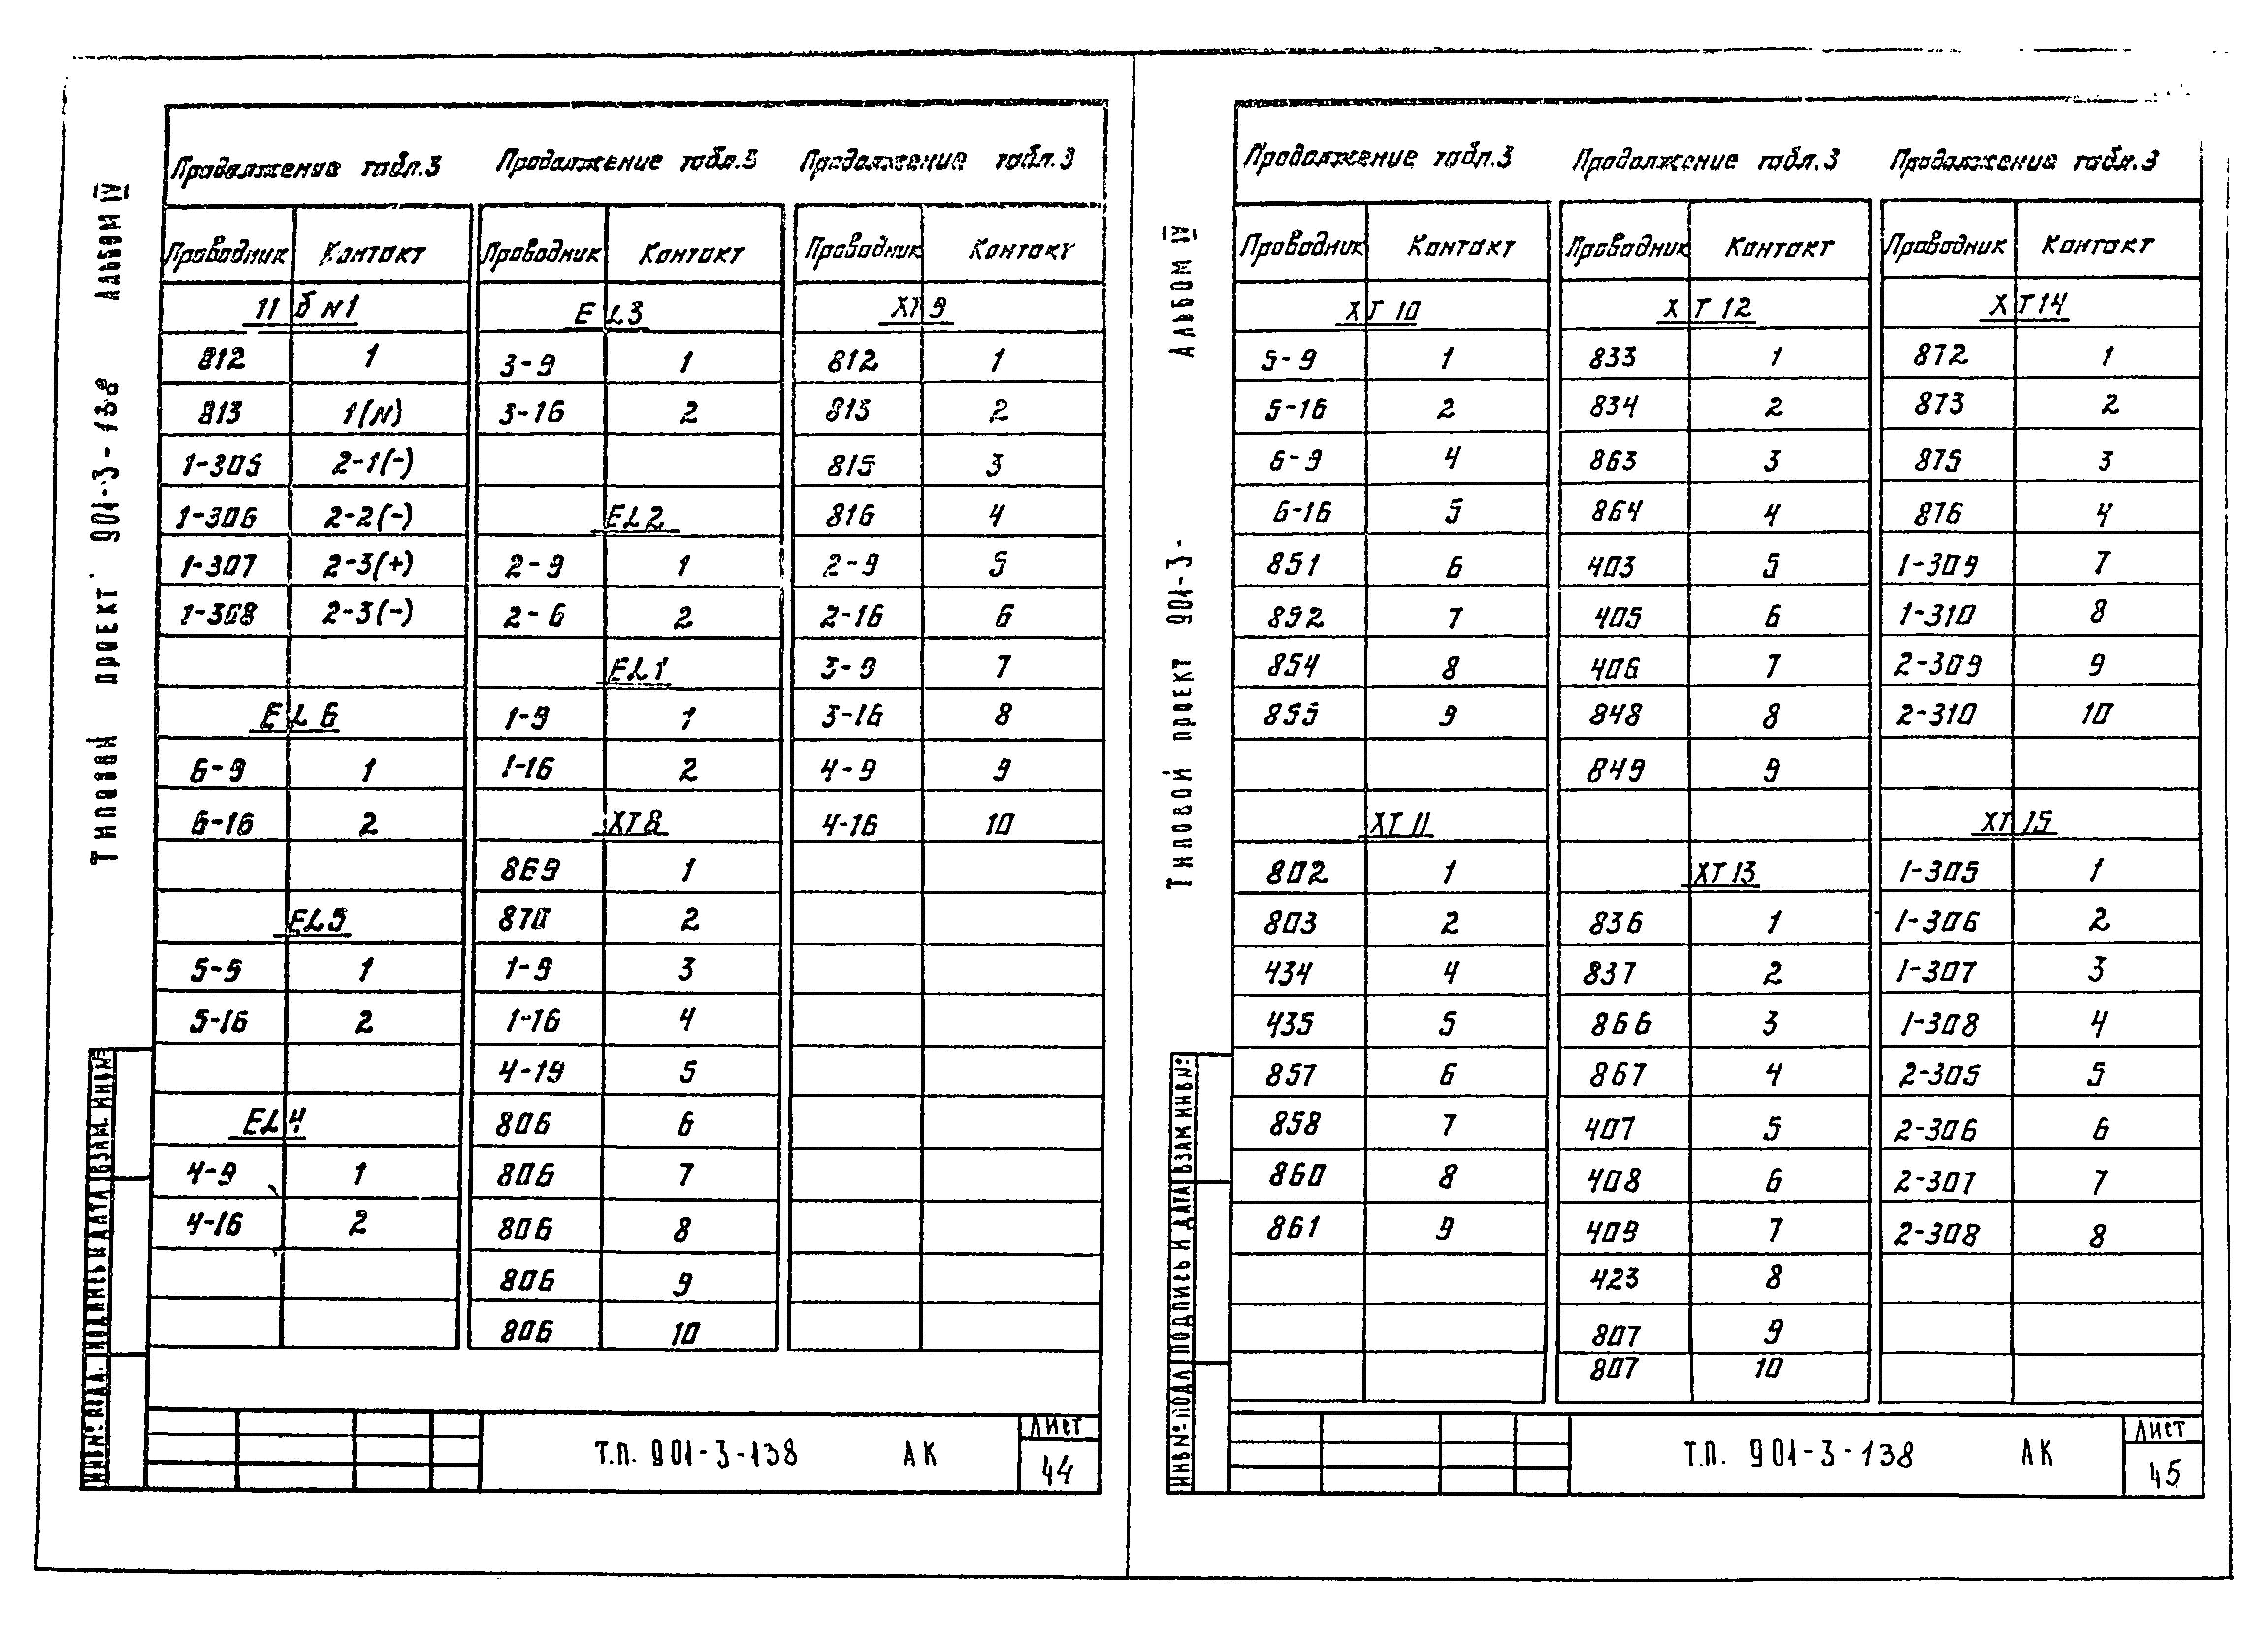 Альбом IV
Типовой проект 901-3-138
Продолжение табл.3
Проводник Контакт
11б N1
812 1
813 1(N)
1-305 2-1(-)
1-306 2-2(-)
1-307 2-3(+)
1-308 2-3(-)
EL6
6-9 1
6-16 2
EL5
5-9 1
5-16 2
EL4
4-9 1
4-16 2
Продолжение табл.3
Проводник Контакт
EL3
3-9 1
3-16 2
EL2
2-9 1
2-6 2
EL1
1-9 1
1-16 2
XT8
869 1
870 2
1-9 3
1-16 4
4-19 5
806 6
806 7
806 8
806 9
806 10
Продолжение табл.3
Проводник Контакт
XT9
812 1
813 2
815 3
816 4
2-9 5
2-16 6
3-9 7
3-16 8
4-9 9
4-16 10
ИНВ№ ПОДЛ. ПОДПИСЬ И ДАТА ВЗАМ. ИНВ№
Т.П. 901-3-138 АК
ЛИСТ
44
Альбом IV
Типовой проект 901-3-
Продолжение табл.3
Проводник Контакт
XT10
5-9 1
5-16 2
6-9 4
6-16 5
851 6
892 7
854 8
855 9
XT11
802 1
803 2
434 4
435 5
857 6
858 7
860 8
861 9
Продолжение табл.3
Проводник Контакт
XT12
833 1
834 2
863 3
864 4
403 5
405 6
406 7
848 8
849 9
XT13
836 1
837 2
866 3
867 4
407 5
408 6
409 7
423 8
807 9
807 10
Продолжение табл.3
Проводник Контакт
XT14
872 1
873 2
875 3
876 4
1-309 7
1-310 8
2-309 9
2-310 10
XT15
1-305 1
1-306 2
1-307 3
1-308 4
2-305 5
2-306 6
2-307 7
2-308 8
ИНВ№ ПОДЛ ПОДПИСЬ И ДАТА ВЗАМ ИНВ№
Т.П. 901-3-138 АК
ЛИСТ
45